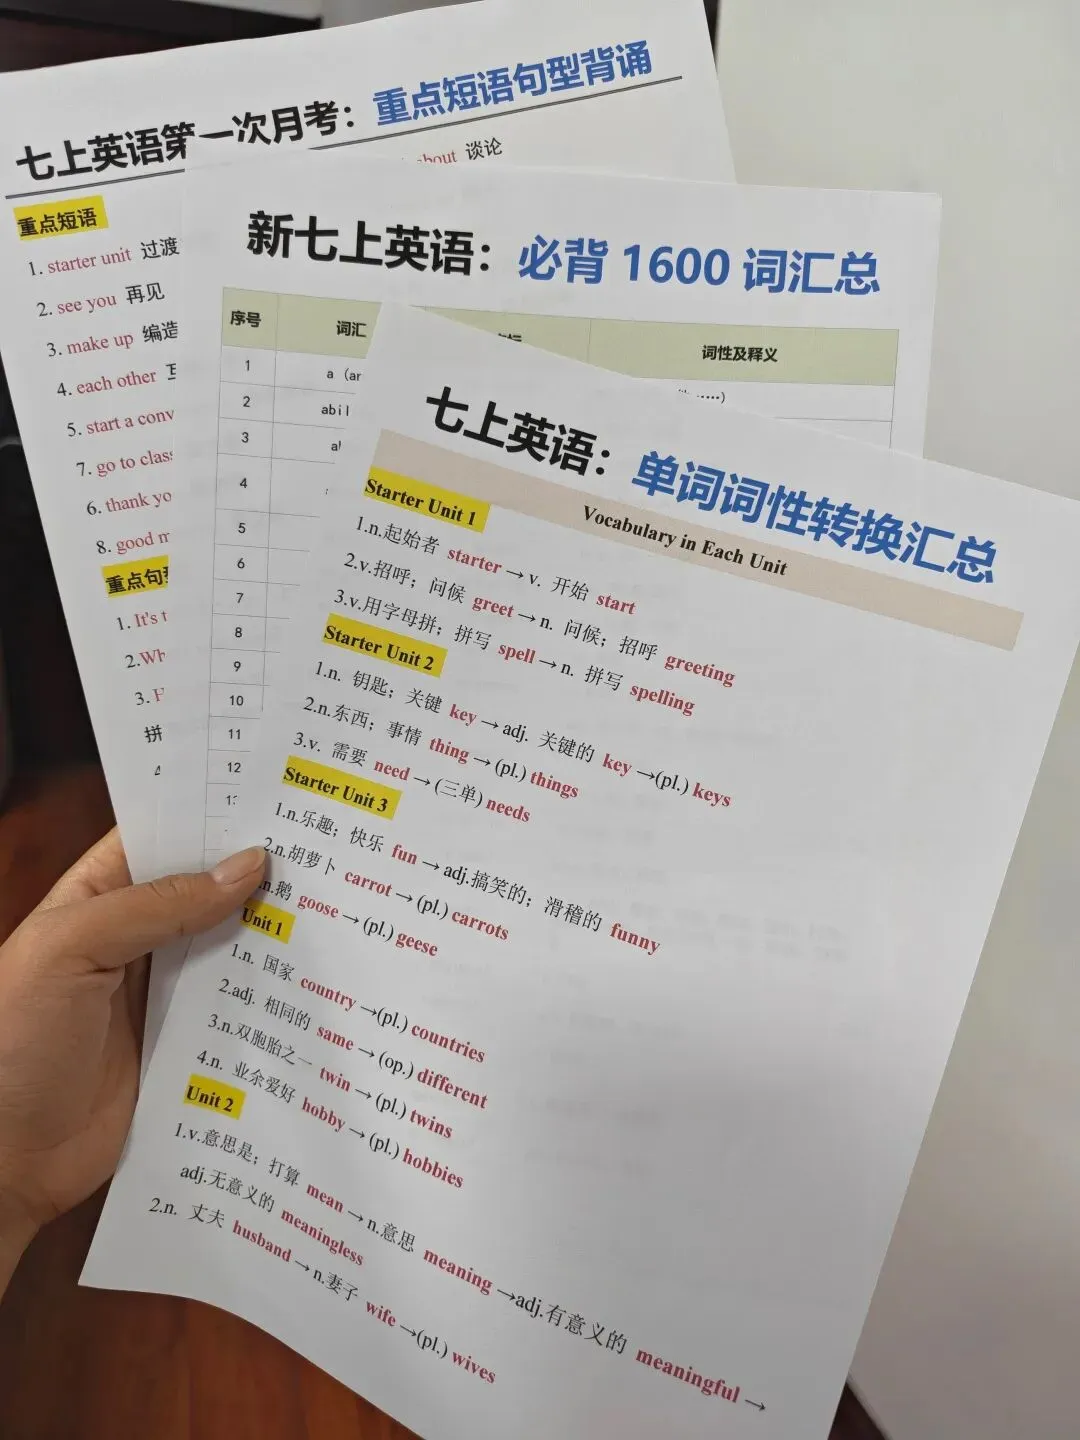 七上英语第一次月考：重点短语句型背诵
about 谈论
重点短语
1. starter unit 过渡
2. see you 再见
3. make up 编造
4. each other
5. start a conv
7. go to class
6. thank yo
8. good m
重点句型
1. It's t
2.Wh
3. H
拼
新七上英语：必背 1600 词汇总
序号 词汇 词性及释义
1 a（ar
2 abil
3 al
4
5
6
7
8
9
10
11
12
七上英语：单词词性转换汇总
Vocabulary in Each Unit
Starter Unit 1
1.n.起始者 starter→v. 开始 start
2.v.招呼；问候 greet→n. 问候；招呼 greeting
3.v.用字母拼；拼写 spell→n. 拼写 spelling
Starter Unit 2
1.n. 钥匙；关键 key→adj. 关键的 key→(pl.) keys
2.n.东西；事情 thing→(pl.) things
3.v. 需要 need→(三单) needs
Starter Unit 3
1.n.乐趣；快乐 fun→adj.搞笑的；滑稽的 funny
2.n.胡萝卜 carrot→(pl.) carrots
n.鹅 goose→(pl.) geese
Unit 1
1.n. 国家 country→(pl.) countries
2.adj. 相同的 same→(op.) different
3.n.双胞胎之一 twin→(pl.) twins
4.n. 业余爱好 hobby→(pl.) hobbies
Unit 2
1.v.意思是；打算 mean→n.意思 meaning→adj.有意义的 meaningful→
adj.无意义的 meaningless
2.n. 丈夫 husband→n.妻子 wife→(pl.) wives